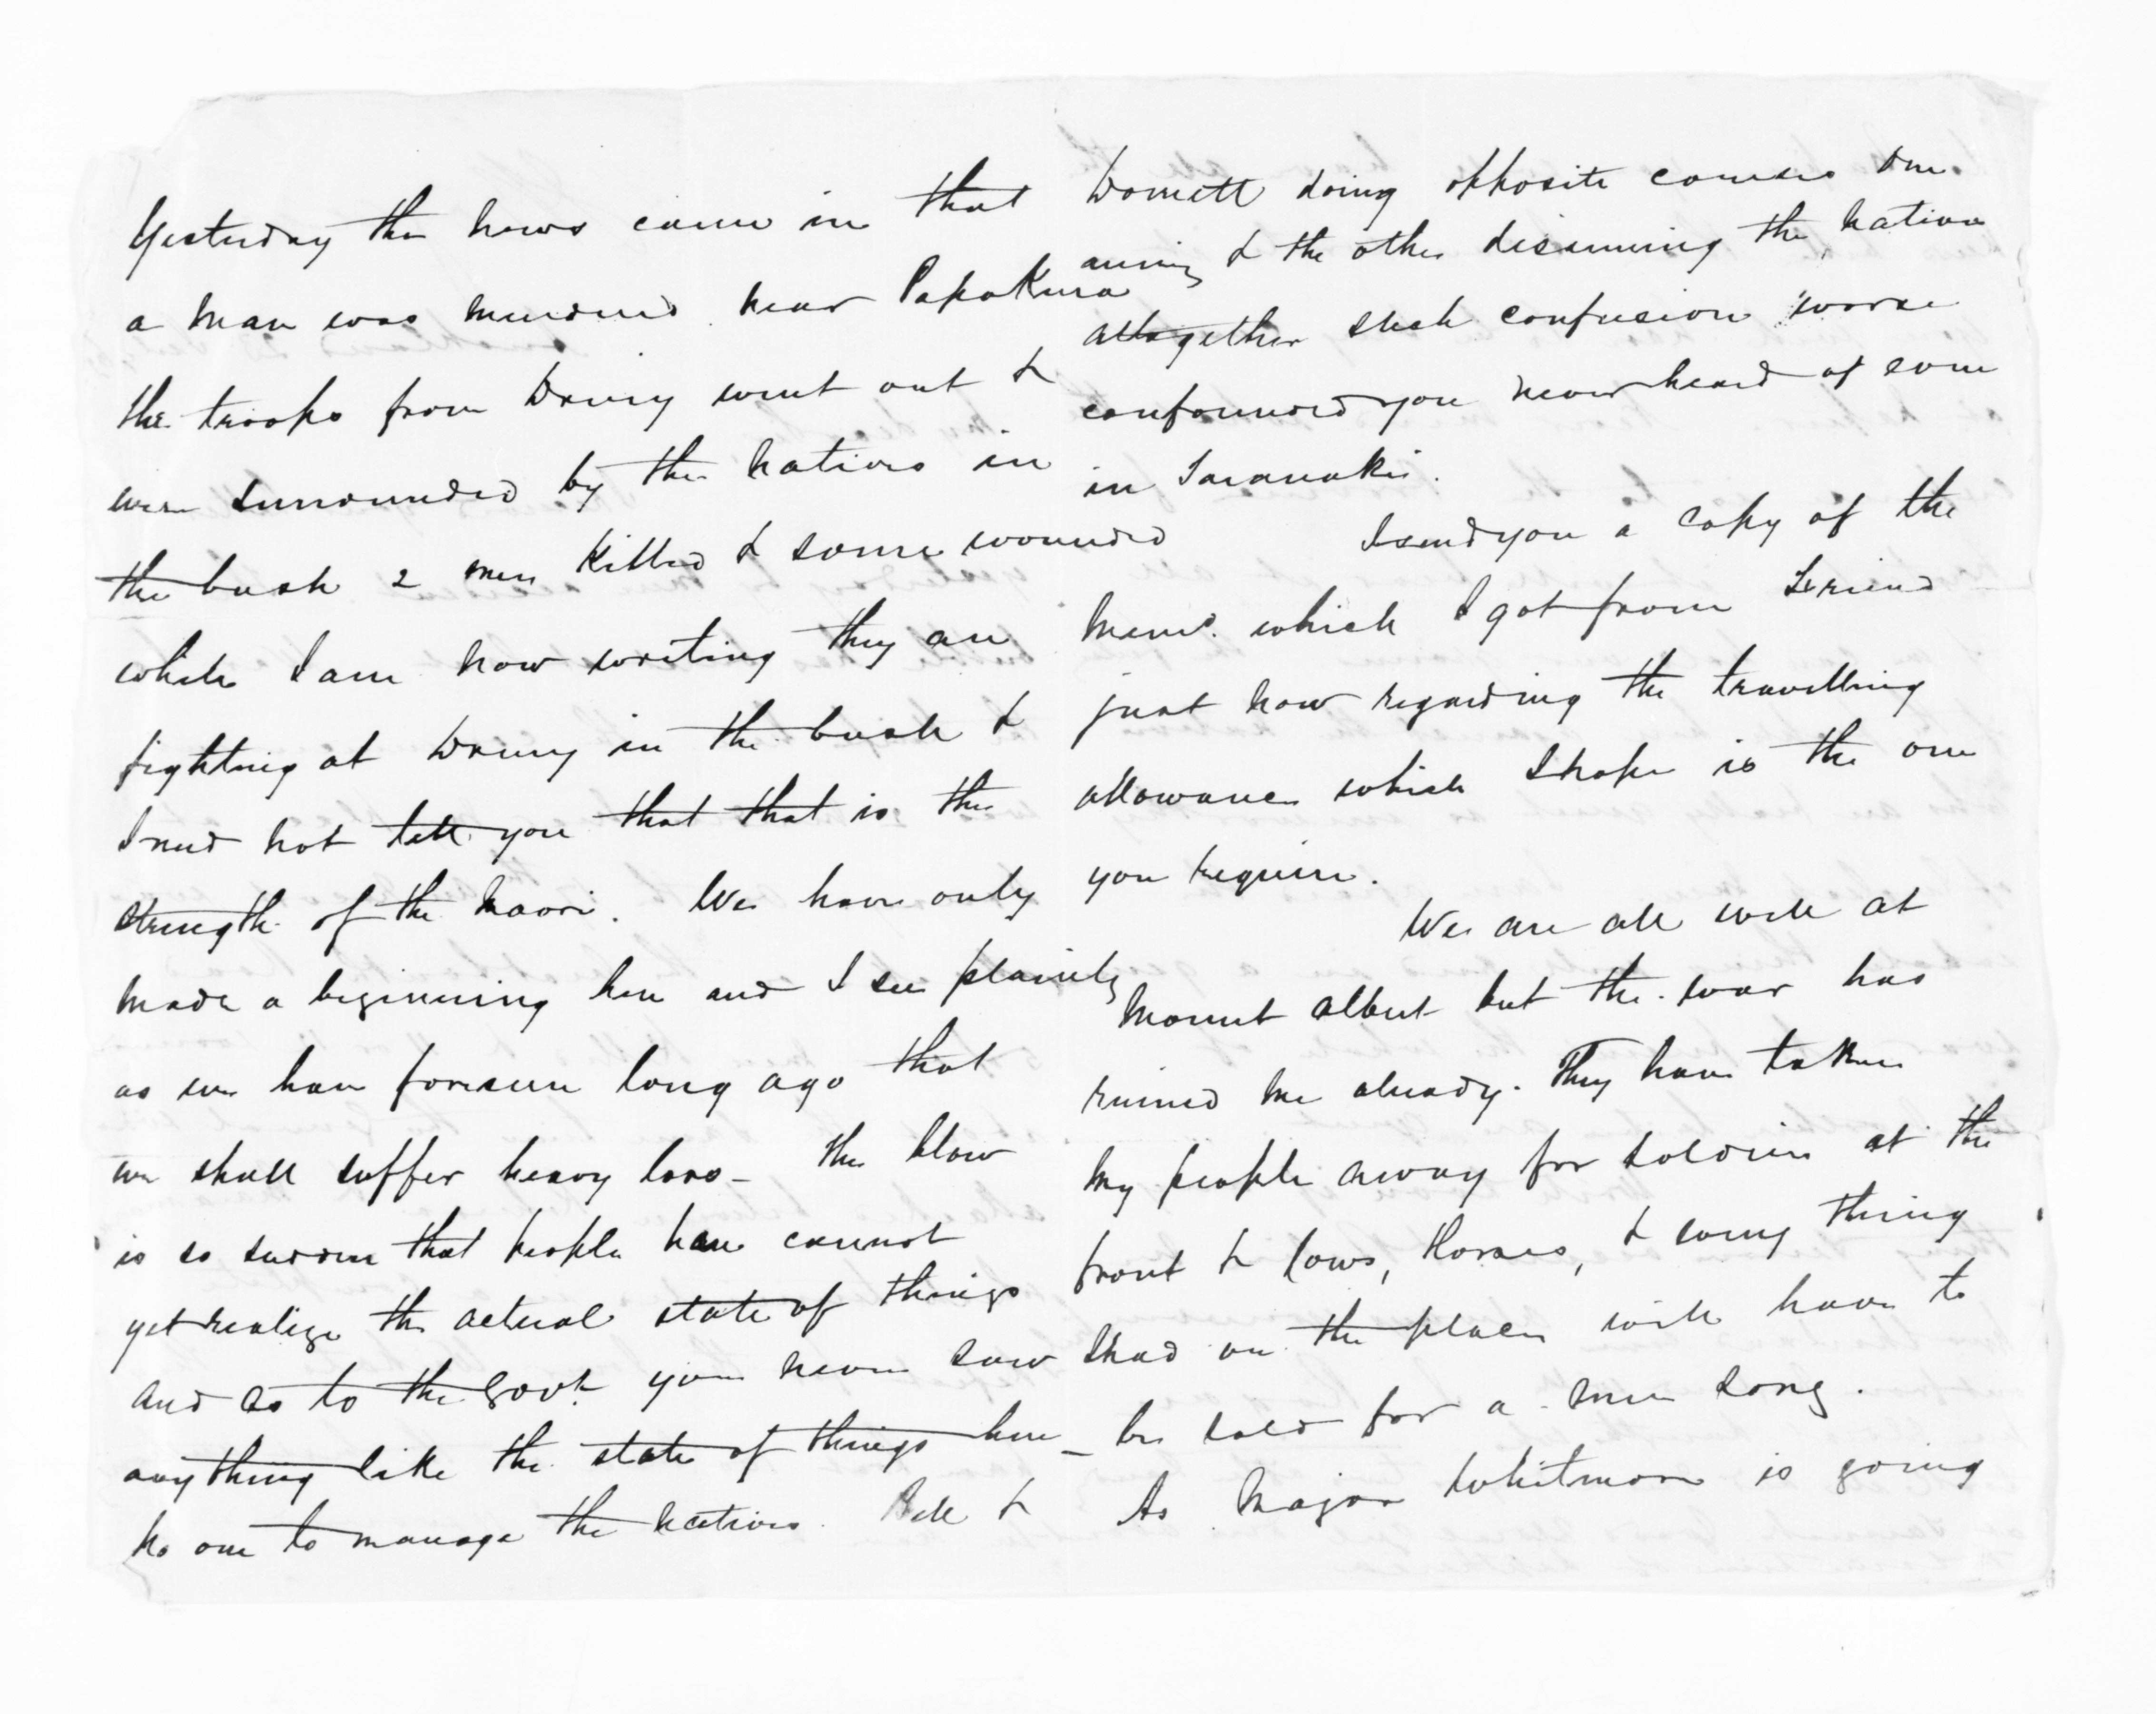 Yesterday the news came in that
a man was murdered near Papakura
the troops from Drury went out &
were surrounded by the natives in
the bush 2 men killed & some wounded
while I am now writing they are
fighting at Drury in the bush &
I need not tell you that that is the
strength of the Maori. We have only
made a beginning here and I see plainly
as we have foreseen long ago that
we shall suffer heavy loss - The blow
is so sudden that people here cannot
yet realize the actual state of things
and as to the Govt. you never saw
anything like the state of things here -
No one to manage the natives. Bell &
Domett doing opposite courses one
arming & the other disarming the natives
altogether such confusion "worse
confounded you never heard of even
in Taranaki.
I send you a copy of the
Memo. which I got from Friend
just now regarding the travelling
allowances which I hope is the one
you require.
We are all well at
Mount Albert but the war has
ruined me already. They have taken
my people away for soldiers at the
front & Cows, Horses, & every thing
I had on the place will have to
be sold for a mere song.
As Major Whitmore is going